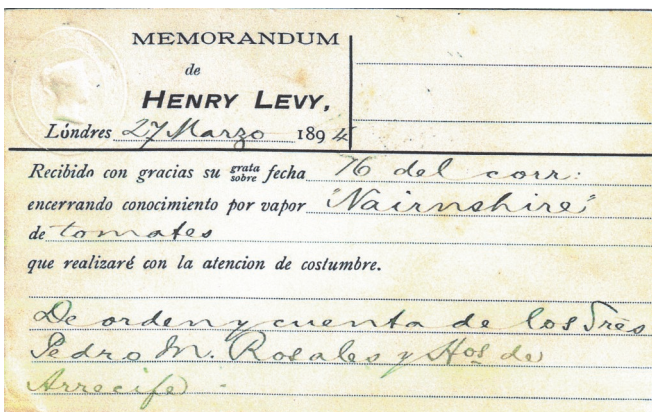 MEMORANDUM
de
HENRY LEVY,
Lóndres 27 Marzo 1894
Recibido con gracias su grata sobre fecha 16 del corr:
encerrando conocimiento por vapor "Nairnshire"
de tomates
que realizaré con la atencion de costumbre.
De orden y cuenta de los Sres
Pedro M. Rosales y Hos de
Arrecife